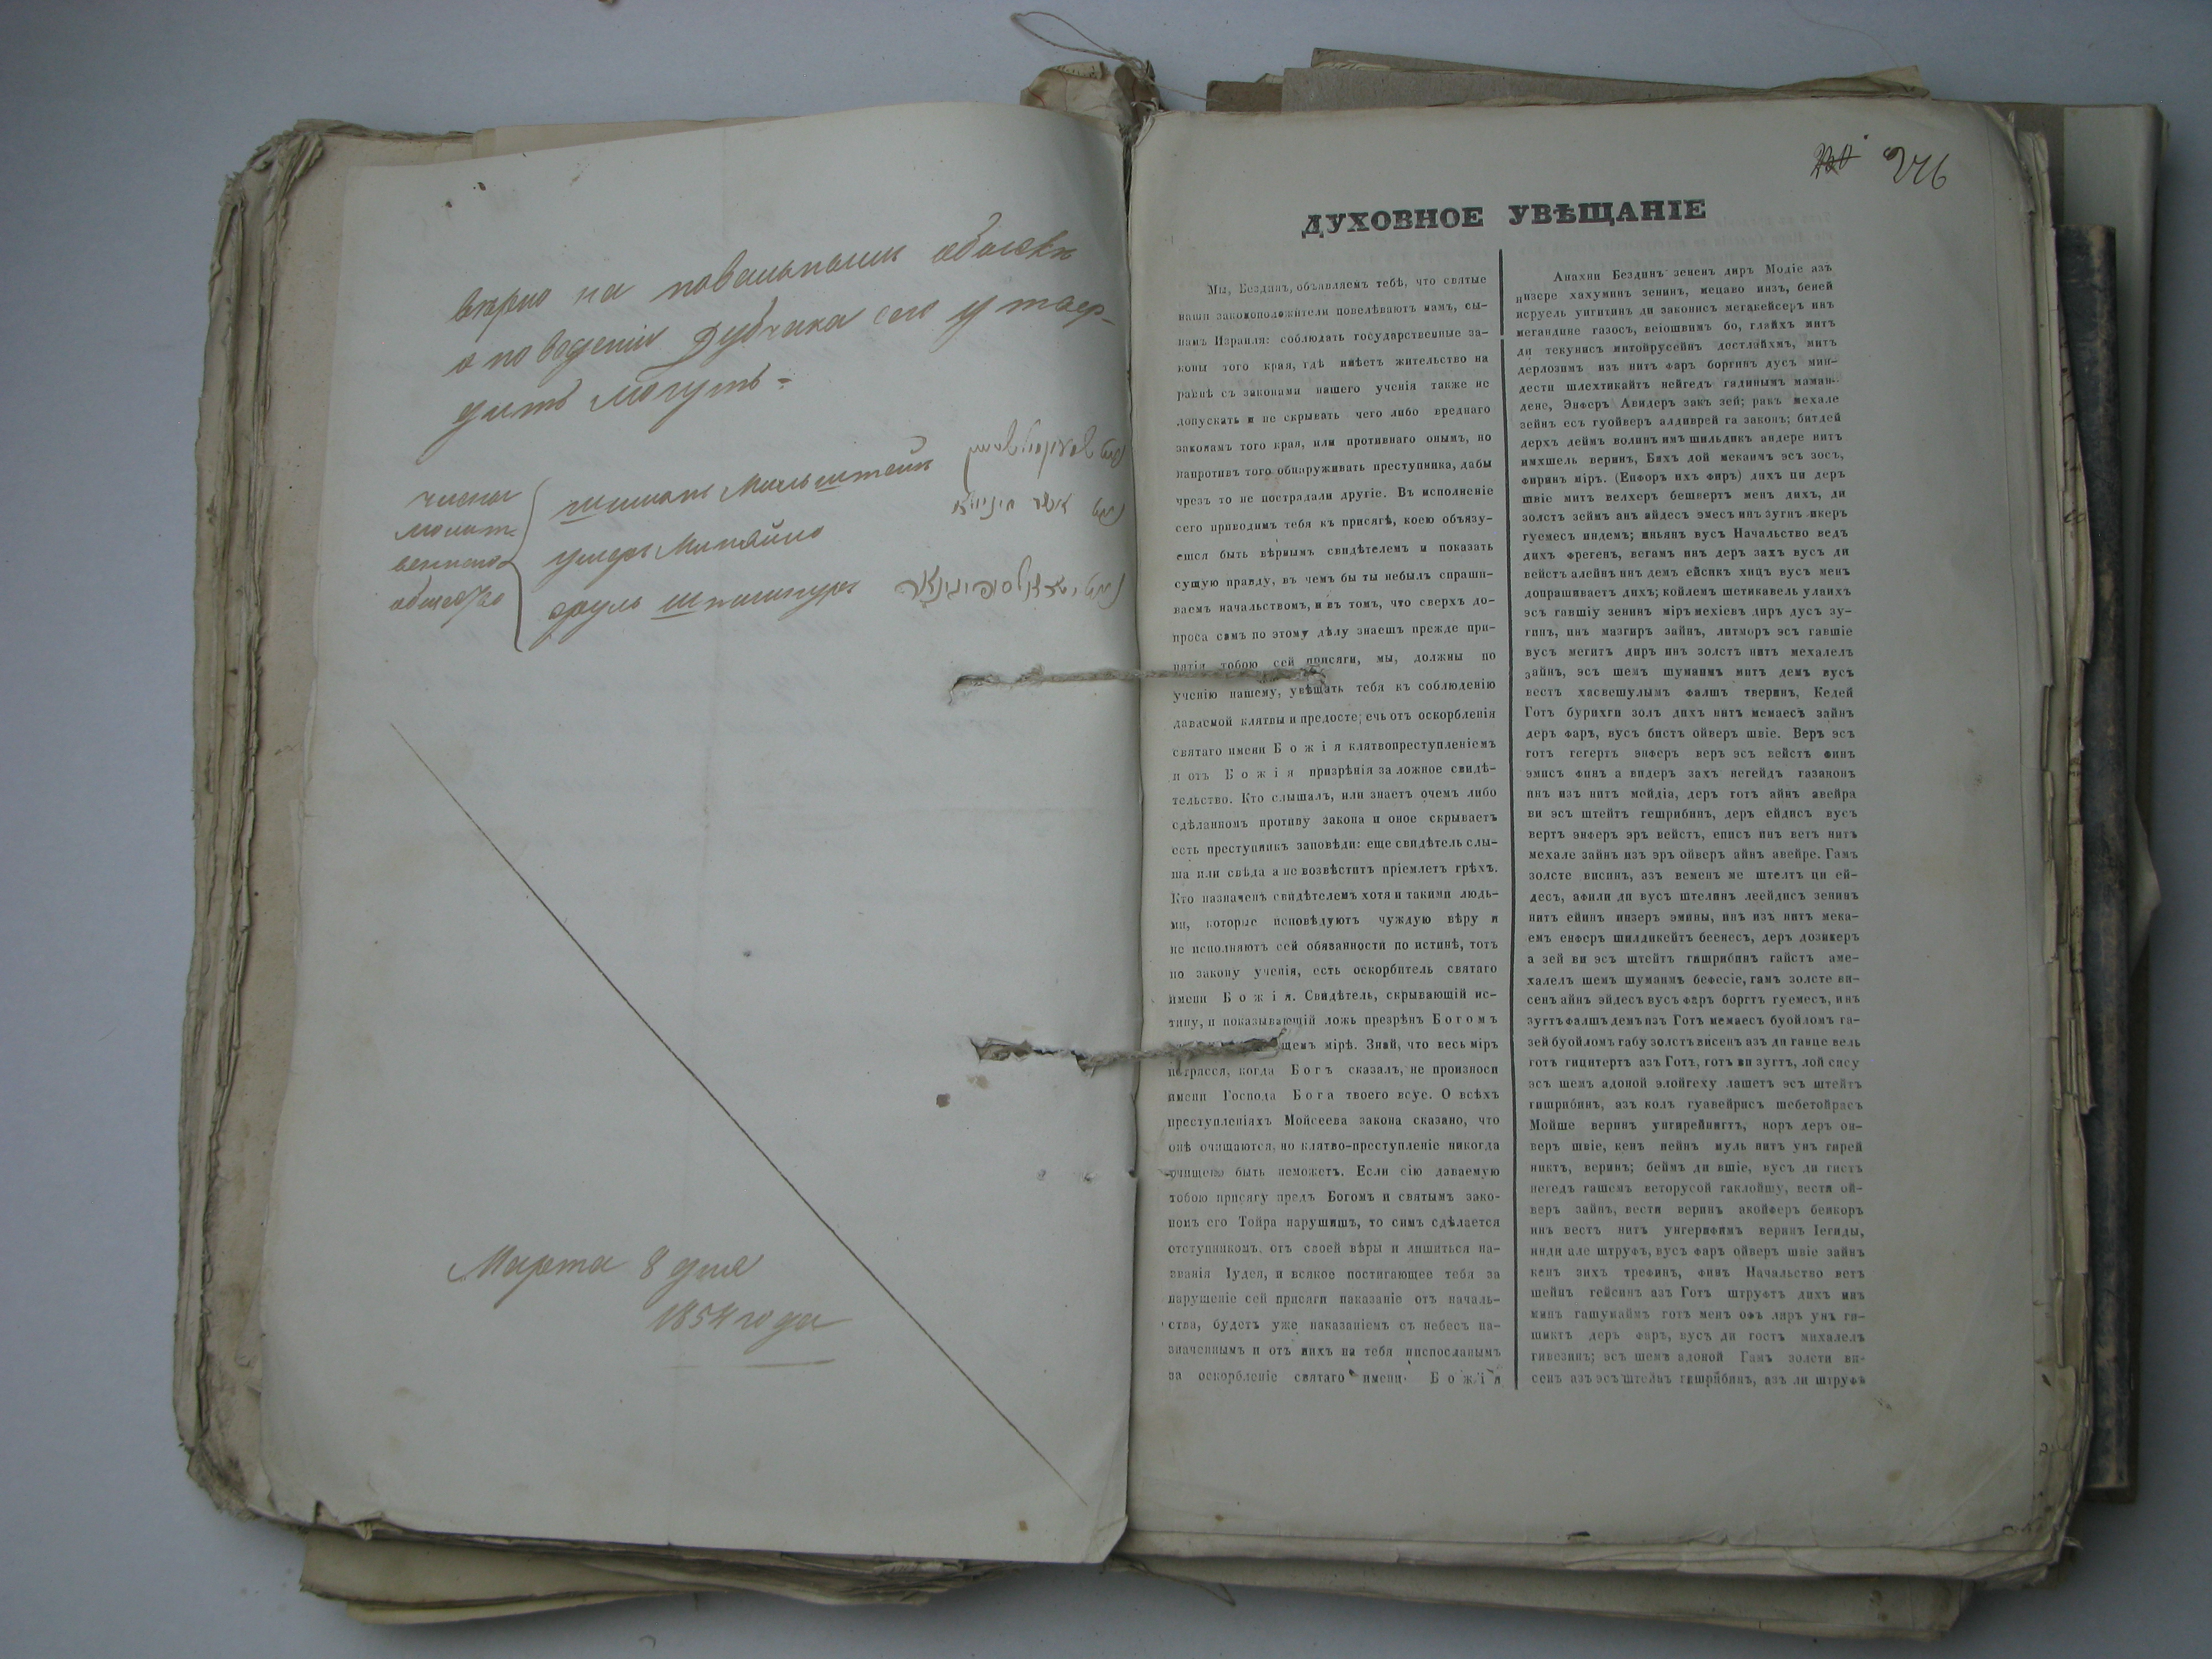 вѣрно на повальномъ обыскѣ
о поведеніи Дубчака сего утвер-
дить могутъ =
члены
молит-
веннаго
общества
Шимонъ Мильштейн
Ушеръ
Сруль
Марта 8 дня
1854 года
246
ДУХОВНОЕ УВѢЩАНІЕ
Мы, Бездинъ, объявляемъ тебѣ, что святые
наши законоположители повелѣваютъ намъ, сы-
намъ Израиля: соблюдать государственные за-
коны того края, гдѣ имѣетъ жительство на
равнѣ съ законами нашего ученія также не
допускать и не скрывать чего либо вреднаго
законамъ того края, или противнаго онымъ, но
напротивъ того обнаруживать преступника, дабы
чрезъ то не пострадали другіе. Въ исполненіе
сего приводимъ тебя къ присягѣ, коею объязу-
ешся быть вѣрнымъ свидѣтелемъ и показать
сущую правду, въ чемъ бы ты небылъ спраши-
ваемъ начальствомъ, и въ томъ, что сверхъ до-
проса самъ по этому дѣлу знаешъ прежде при-
нятія тобою сей присяги, мы, должны по
ученію нашему, увѣщать тебя къ соблюденію
даваемой клятвы и предосте; ечь отъ оскорбленія
святаго имени Божія клятвопреступленіемъ
и отъ Божія призрѣнія за ложное свидѣ-
тельство. Кто слышалъ, или знаетъ очемъ либо
сдѣланномъ противу закона и оное скрываетъ
есть преступникъ заповѣди: еще свидѣтель слы-
ша или свѣда а не возвѣститъ пріемлетъ грѣхъ.
Кто назначенъ свидѣтелемъ хотя и такими людь-
ми, которые исповѣдуютъ чуждую вѣру и
не исполняютъ сей обязанности по истинѣ, тотъ
по закону ученія, есть оскорбитель святаго
имени Божія. Свидѣтель, скрывающій ис-
тину, и показывающій ложь презрѣнъ Богомъ
щемъ мірѣ. Знай, что весь міръ
потрясся, когда Богъ сказалъ, не произноси
имени Господа Бога твоего всуе. О всѣхъ
преступленіяхъ Мойсеева закона сказано, что
онѣ очищаются, но клятво-преступленіе никогда
очищено быть неможетъ. Если сію даваемую
тобою присягу предъ Богомъ и святымъ зако-
номъ его Тойра нарушишъ, то симъ сдѣлается
отступникомъ отъ своей вѣры и лишиться на-
званія Іудея, и всякое постигающее тебя за
нарушеніе сей присяги наказаніе отъ началь-
ства, будетъ уже наказаніемъ съ небесъ на-
значеннымъ и отъ нихъ на тебя ниспосланымъ
за оскорбленіе святаго имени Божія
Анахни Бездинъ зененъ диръ Модіе азъ
инзере хахуминъ зенинъ, мецаво инзъ, беней
исруель унгитинъ ди законисъ мегакейсеръ инъ
мегандине газосъ, веіошвимъ бо, глайхъ митъ
ди текунисъ митойрусейнъ достлайхмъ, митъ
дерлозимъ изъ нитъ фаръ боргинъ дусъ мин-
дести шлехтикайтъ нейгедъ гадинымъ маман-
дене, Энферъ Авидеръ закъ зей; ракъ мехале
зейнъ есъ гуойверъ алдиврей га законъ; битдей
дерхъ деймъ волинъ имъ шильдикъ андере нитъ
имхшель веринъ, Бихъ дой мекаимъ эсъ зосъ,
фиринъ міръ. (Енфоръ ихъ фиръ) дихъ ци деръ
швіе митъ велхеръ бешвертъ менъ дихъ, ди
золстъ зеймъ анъ айдесъ эмесъ инъ зугнъ икеръ
гуемесъ индемъ; иньянъ вусъ Начальство ведъ
дихъ фрегенъ, вегамъ инъ деръ захъ вусъ ди
вейстъ алейнъ инъ демъ ейсикъ хицъ вусъ менъ
допрашиваетъ дихъ; койлемъ шетикавель улаихъ
эсъ гавшіу зенинъ міръ мехіевъ диръ дусъ зу-
гинъ, инъ мазгиръ зайнъ, литморъ эсъ гавшіе
вусъ мегитъ диръ инъ золстъ нитъ мехалелъ
зайнъ, эсъ шемъ шумаимъ митъ демъ вусъ
вестъ хасвешулымъ фалшъ тверинъ, Кедей
Готъ бурихги золъ дихъ нитъ мемаесъ зайнъ
деръ фаръ, вусъ бистъ ойверъ швіе. Веръ эсъ
готъ гегертъ энферъ веръ эсъ вейстъ финъ
эмисъ финъ а видеръ захъ негейдъ газаконъ
инъ изъ нитъ мойдіа, деръ готъ айнъ авейра
ви эсъ штейтъ гешрибинъ, деръ ейдисъ вусъ
вертъ энферъ эръ вейстъ, еписъ инъ ветъ нитъ
мехале зайнъ изъ эръ ойверъ айнъ авейре. Гамъ
золсте висинъ, азъ веменъ ме штелтъ ци ей-
десъ, афили ди вусъ штелинъ леейдисъ зенинъ
нитъ ейинъ инзеръ эмины, инъ изъ нитъ мека-
емъ енферъ шилдикейтъ беенесъ, деръ дозикеръ
а зей ви эсъ штейтъ гишрибинъ гайстъ аме-
халелъ шемъ шумаимъ бефесіе, гамъ золсте ви-
сенъ айнъ эйдесъ вусъ фаръ боргтъ гуемесъ, инъ
зугтъ фалшъ демъ изъ Готъ мемаесъ буойломъ га-
зей буойломъ габу золстъ висенъ азъ ди ганце вель
готъ гицитертъ азъ Готъ, готъ ви зугтъ, лой сису
эсъ шемъ адоной элойгеху лашетъ эсъ штейтъ
гишрибинъ, азъ колъ гуавейрисъ шебетойрасъ
Мойше веринъ унгирейнигтъ, норъ деръ ой-
веръ швіе, кенъ нейнъ муль нитъ унъ гирей
никтъ, веринъ; беймъ ди вшіе, вусъ ди гистъ
негедъ гашемъ веторусой гаклойшу, вести ой-
веръ зайнъ, вести веринъ акойферъ беикоръ
инъ вестъ нитъ унгерифимъ веринъ Іегиды,
инди але штруфъ, вусъ фаръ ойверъ швіе зайнъ
кенъ зихъ трефинъ, финъ Начальство ветъ
шейнъ гейсинъ азъ Готъ штруфтъ дихъ инъ
минъ гашумаймъ готъ менъ офъ диръ унъ ги-
шиктъ деръ фаръ, вусъ ди гостъ михалелъ
гивезинъ; эсъ шемъ адоной Гамъ золсти ви-
сенъ азъ эсъ штейтъ гишрибинъ, азъ ди штруфъ